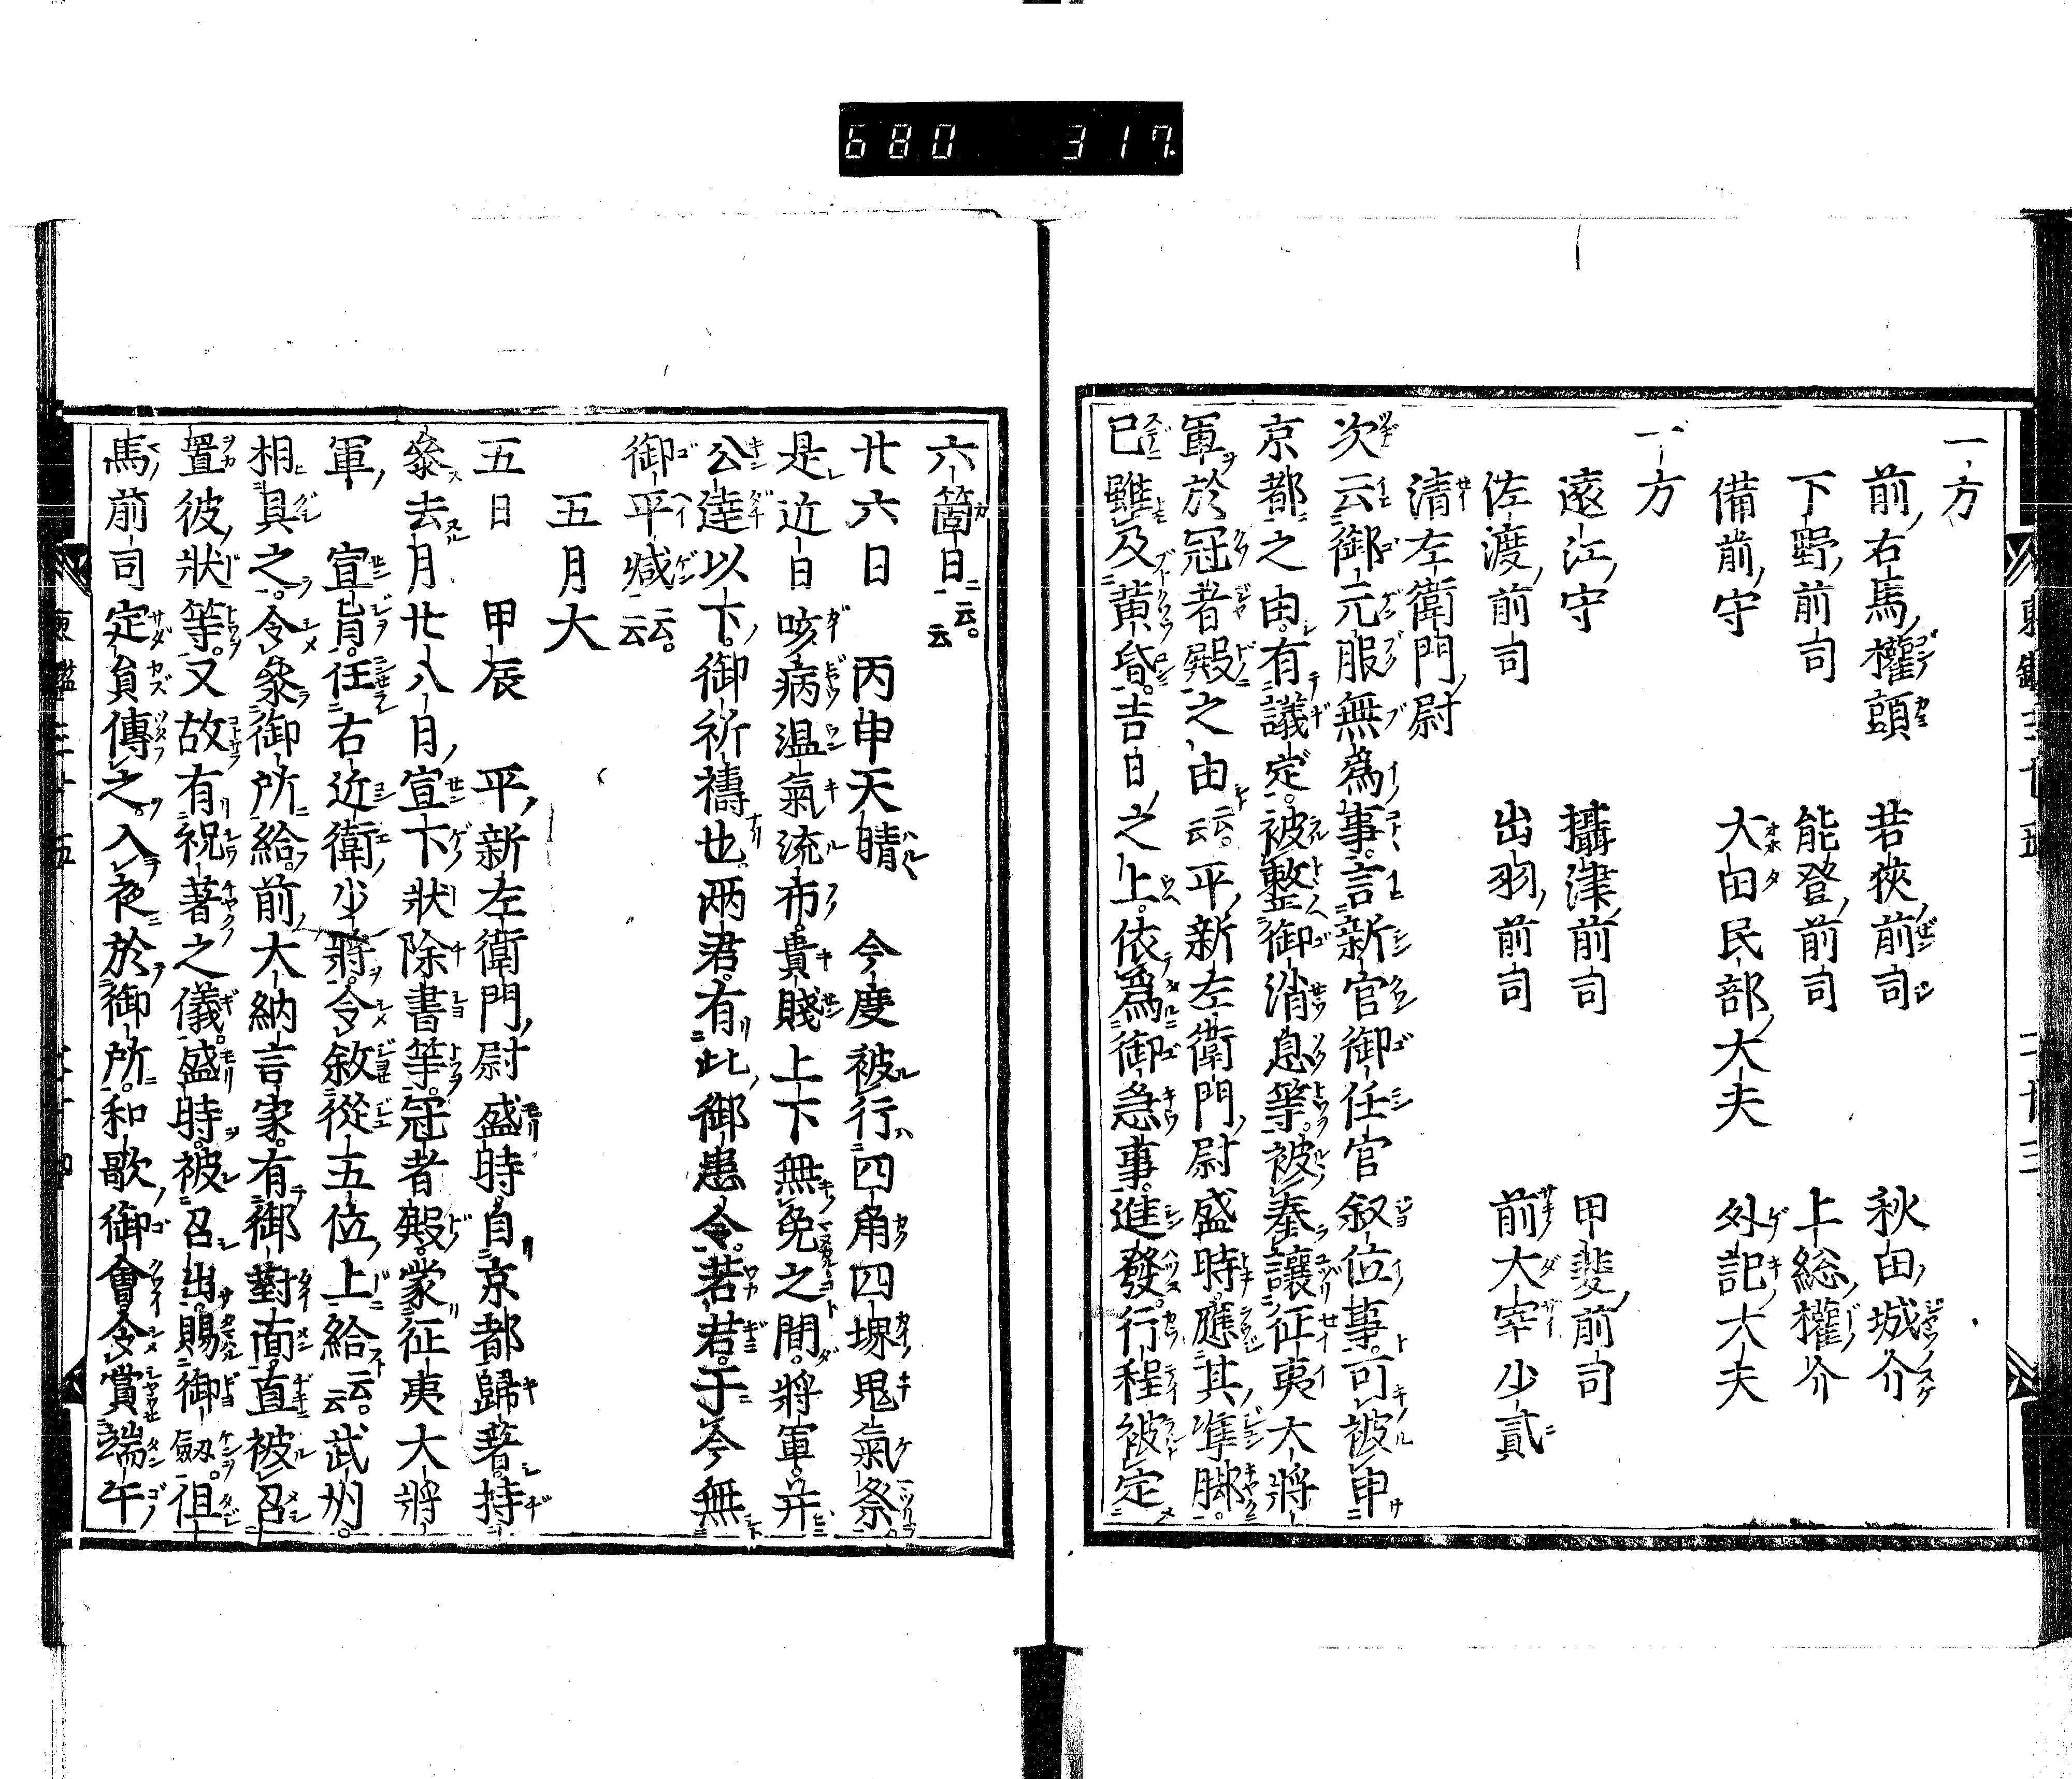 680 317
一方
前右馬權頭 若狹前司 秋田城介
下野前司 能登前司 上総權介
備前守 大田民部大夫 外記大夫
一方
遠江守 攝津前司 甲斐前司
佐渡前司 出羽前司 前大宰少貳
清左衛門尉
次云御元服無爲事。言新官御任官敘位事。可被申
京都之由。有議定。被整御消息等。被奉讓征夷大將
軍於冠者殿之由云云。平新左衛門尉盛時。應其準脚。
已雖及黄昏。吉日之上。依爲御急事。進發。行程被定
六箇日云云。
廿六日 丙申天晴 今度被行四角四堺鬼氣祭
是近日咳病温氣流布。貴賤上下無免之間。將軍并
公達以下。御祈禱也。两君。有此御患。令若君。于今無
御平減云云。
五月大
五日 甲辰 平新左衛門尉盛時。自京都歸著。持
參去月廿八日宣下狀除書等。冠者殿。蒙征夷大將
軍 宣旨。任右近衛少將。令敘從五位上給云云。武州。
相具之。令參御所給。前大納言家。有御對面。直被召
置彼狀等。又故有祝著之儀。盛時。被召出。賜御劔。但
馬前司定員傳之。入夜於御所。和歌御會。令賞端午